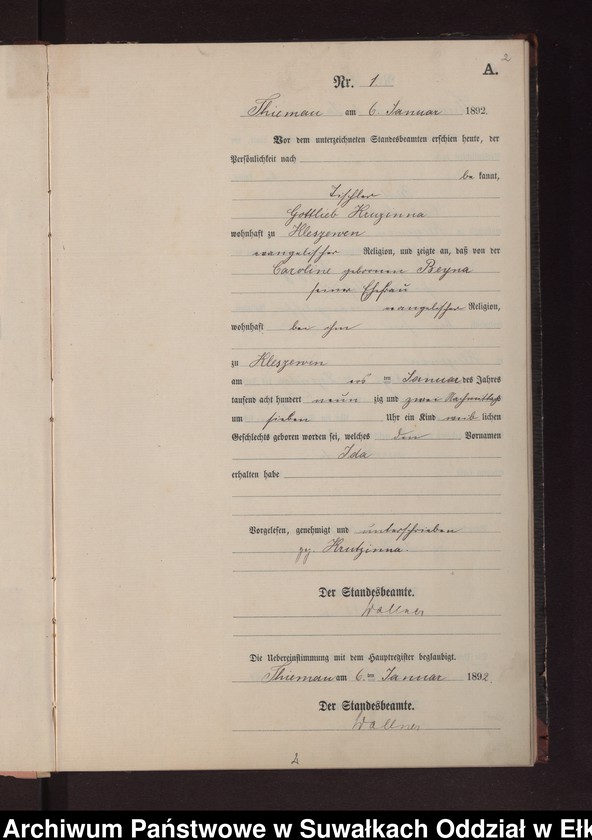 2
A.
Nr. 1
Thiemau am 6. Januar 1892.
Vor dem unterzeichneten Standesbeamten erschien heute, der
Persönlichkeit nach
be kannt,
Tischler
Gottlieb Kruzinna
wohnhaft zu Kleszewen
evangelischer Religion, und zeigte an, daß von der
Caroline gebornen Beyna
seiner Ehefrau
evangelischer Religion,
wohnhaft bei ihm
zu Kleszewen
am ten Januar des Jahres
tausend acht hundert neun zig und zwei Nachmittags
um sieben Uhr ein Kind weib lichen
Geschlechts geboren worden sei, welches den Vornamen
Ida
erhalten habe
Vorgelesen, genehmigt und unterschrieben
gz. Krutzinna.
Der Standesbeamte.
Wallner
Die Uebereinstimmung mit dem Hauptregister beglaubigt.
Thiemau am 6. ten Januar 1892.
Der Standesbeamte.
Wallner
Archiwum Państwowe w Suwałkach Oddział w Ełk